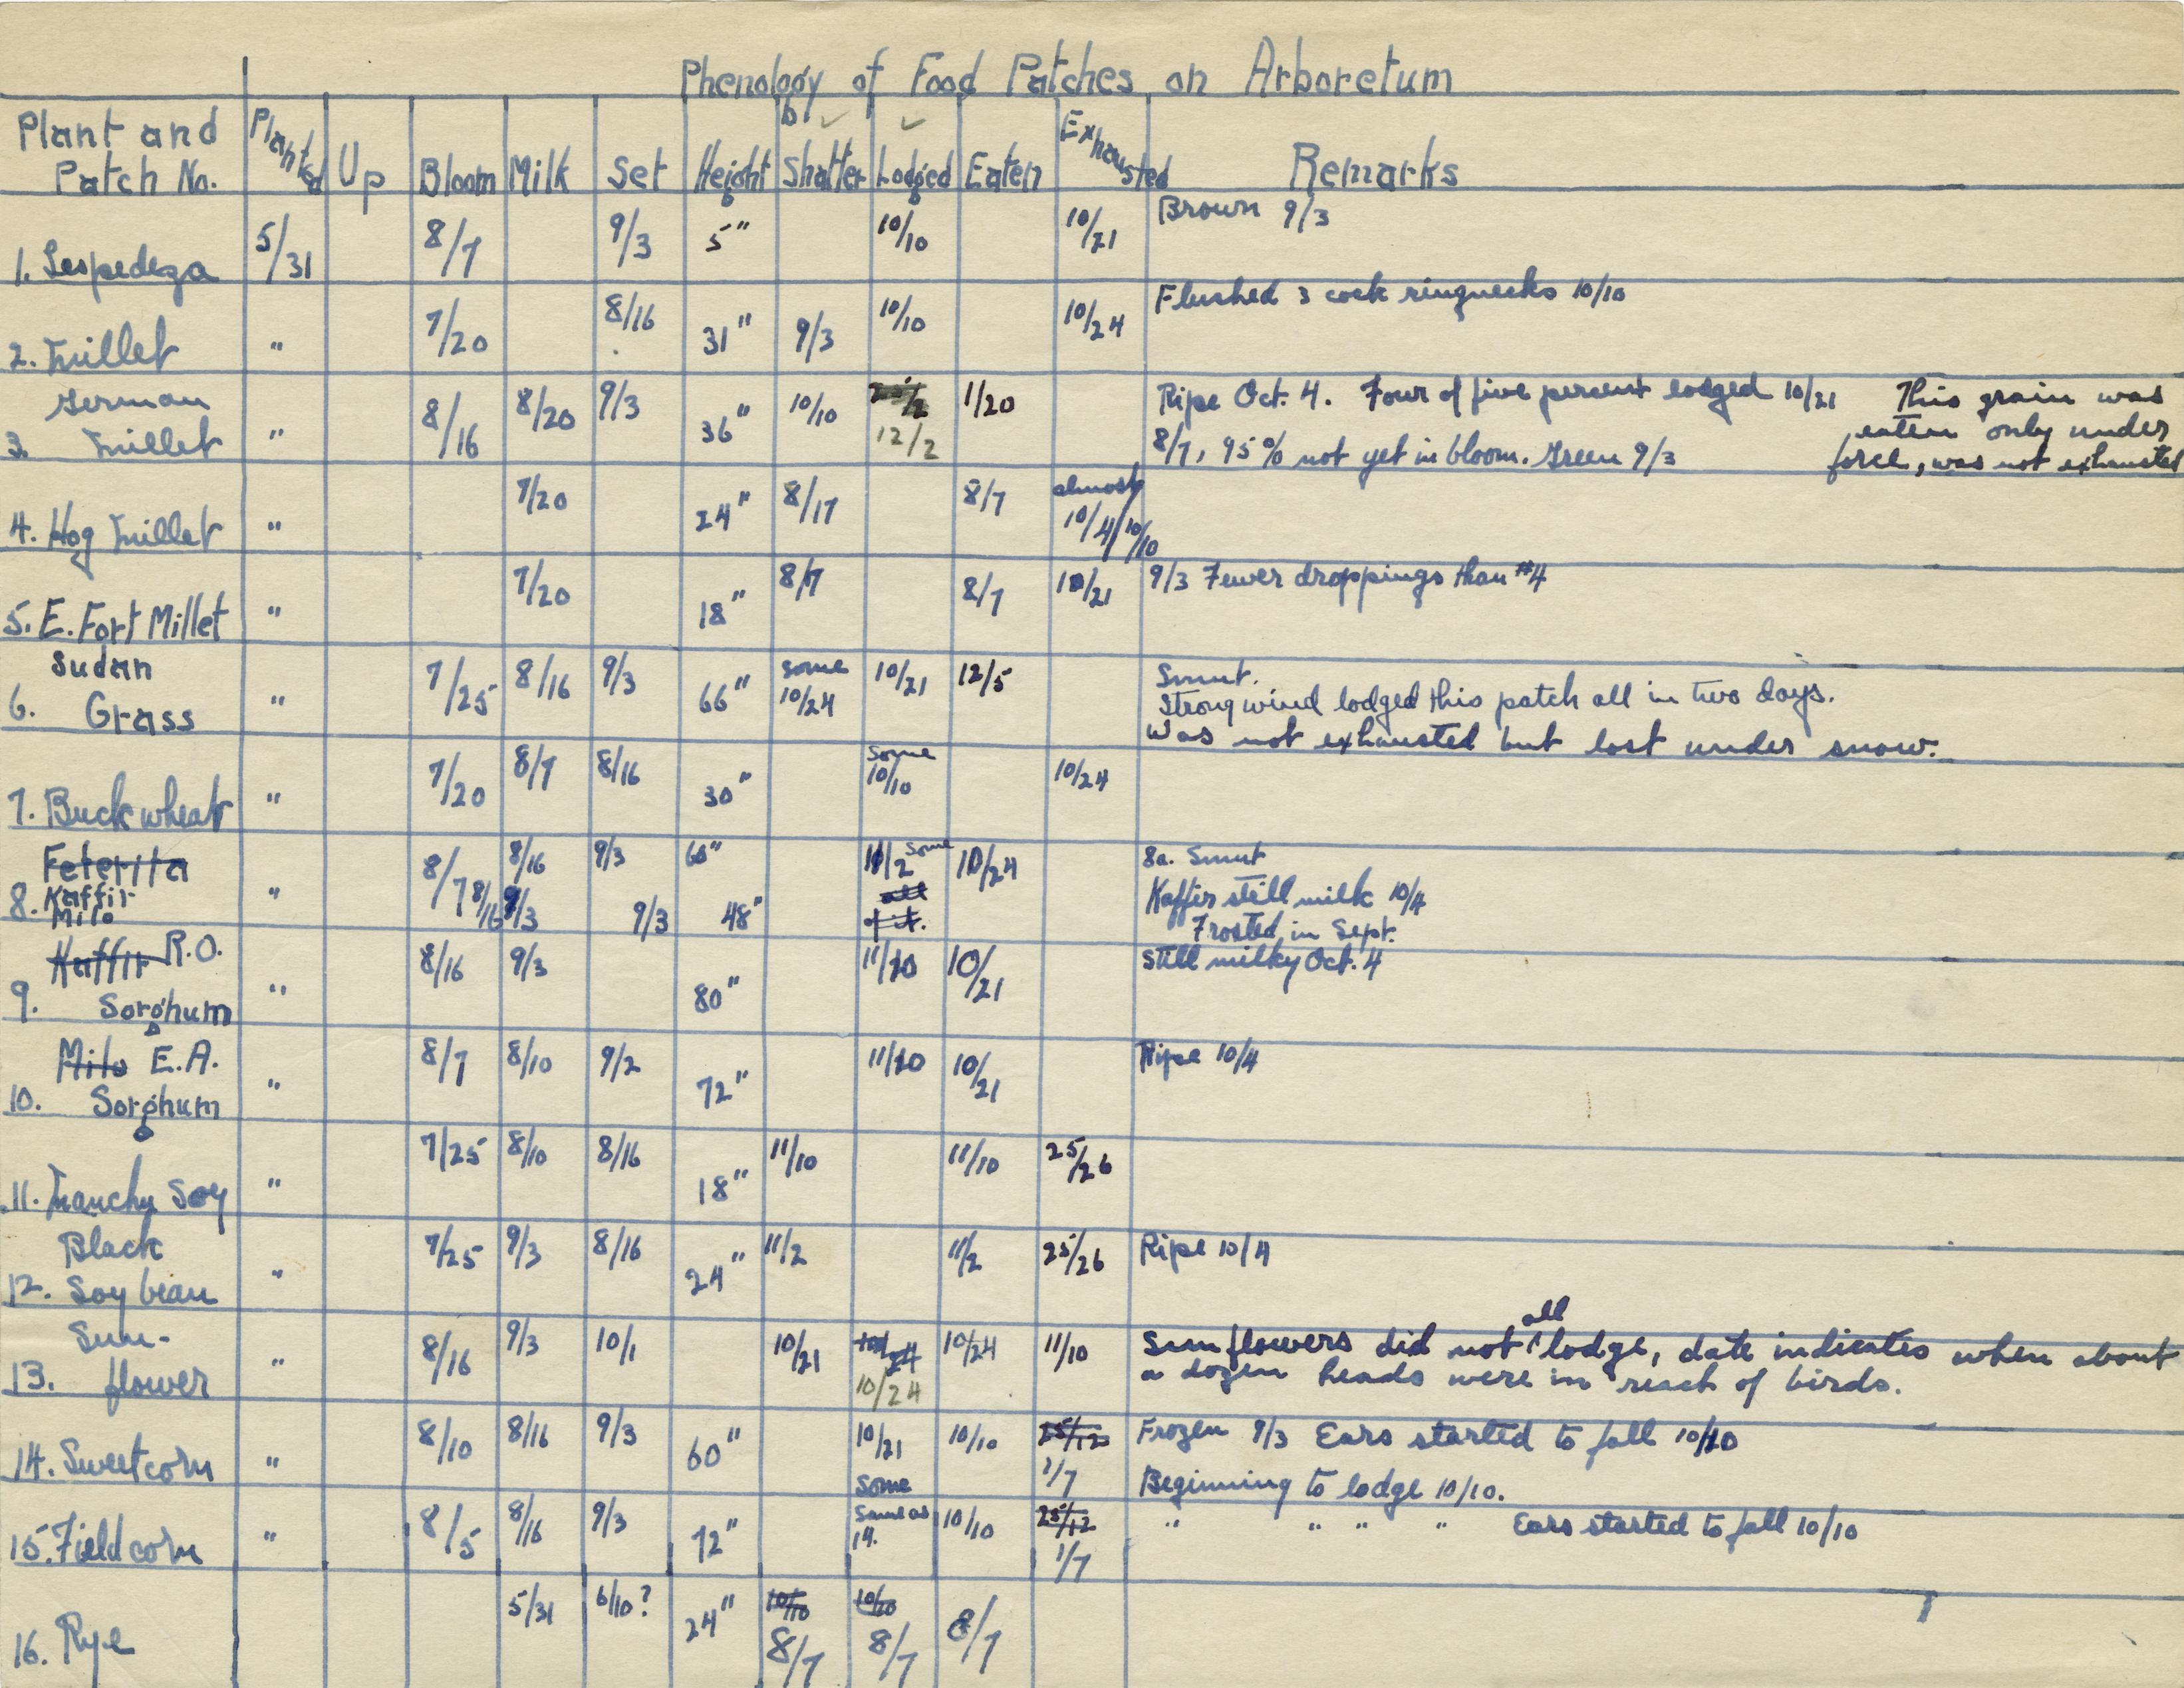 Phenology of Food Patches on Arboretum
Plant and Patch No. Planted Up Bloom Milk Set Height Shatter Lodged Eaten Exhausted Remarks
1. Lespedeza 5/31 8/7 9/3 5" 10/10 10/21 Brown 9/3
2. Millet " 7/20 8/16 31" 9/3 10/10 10/24 Flushed 3 cock ringnecks 10/10
German
3. Millet " 8/16 8/20 9/3 36" 10/10 12/2 1/20 Ripe Oct. 4. Four of five percent lodged 10/21 This grain was
8/7, 95% not yet in bloom. Green 9/3 eaten only under
force, was not exhausted
4. Hog Millet " 7/20 24" 8/17 8/7 almost 10/4/10/10
5. E. Fort Millet " 7/20 18" 8/7 8/7 10/21 9/3 Fewer droppings than #4
Sudan
6. Grass " 7/25 8/16 9/3 66" some 10/24 10/21 12/5 Smut.
Strong wind lodged this patch all in two days.
Was not exhausted but lost under snow.
7. Buckwheat " 7/20 8/7 8/16 30" some 10/10 10/24
Feterita 8/7 8/16 9/3 60" 11/2 some 10/24 8a. Smut
8. Kaffir " 8/16 9/3 9/3 48" all Kaffir still milk 10/4
Milo of it. Frosted in Sept.
Kaffir R.O. 8/16 9/3 11/10 10/21 Still milky Oct. 4
9. Sorghum " 80"
Milo E.A. 8/7 8/10 9/2 11/10 10/21 Ripe 10/4
10. Sorghum " 72"
11. Manchu Soy " 7/25 8/10 8/16 18" 11/10 11/10 25/26
Black
12. Soy bean " 7/25 9/3 8/16 24" 11/2 11/2 25/26 Ripe 10/4
Sun-
13. flower " 8/16 9/3 10/1 10/21 10/24 10/24 10/24 11/10 Sunflowers did not all lodge, date indicates when about
a dozen heads were in reach of birds.
14. Sweetcorn " 8/10 8/16 9/3 60" 10/21 some 10/10 25/12 1/7 Frozen 9/3 Ears started to fall 10/10
Beginning to lodge 10/10.
15. Field corn " 8/5 8/16 9/3 72" Same as 14. 10/10 25/12 1/7 " " " " Ears started to fall 10/10
16. Rye 5/31 6/10? 24" 10/10 8/7 10/10 8/7 8/7